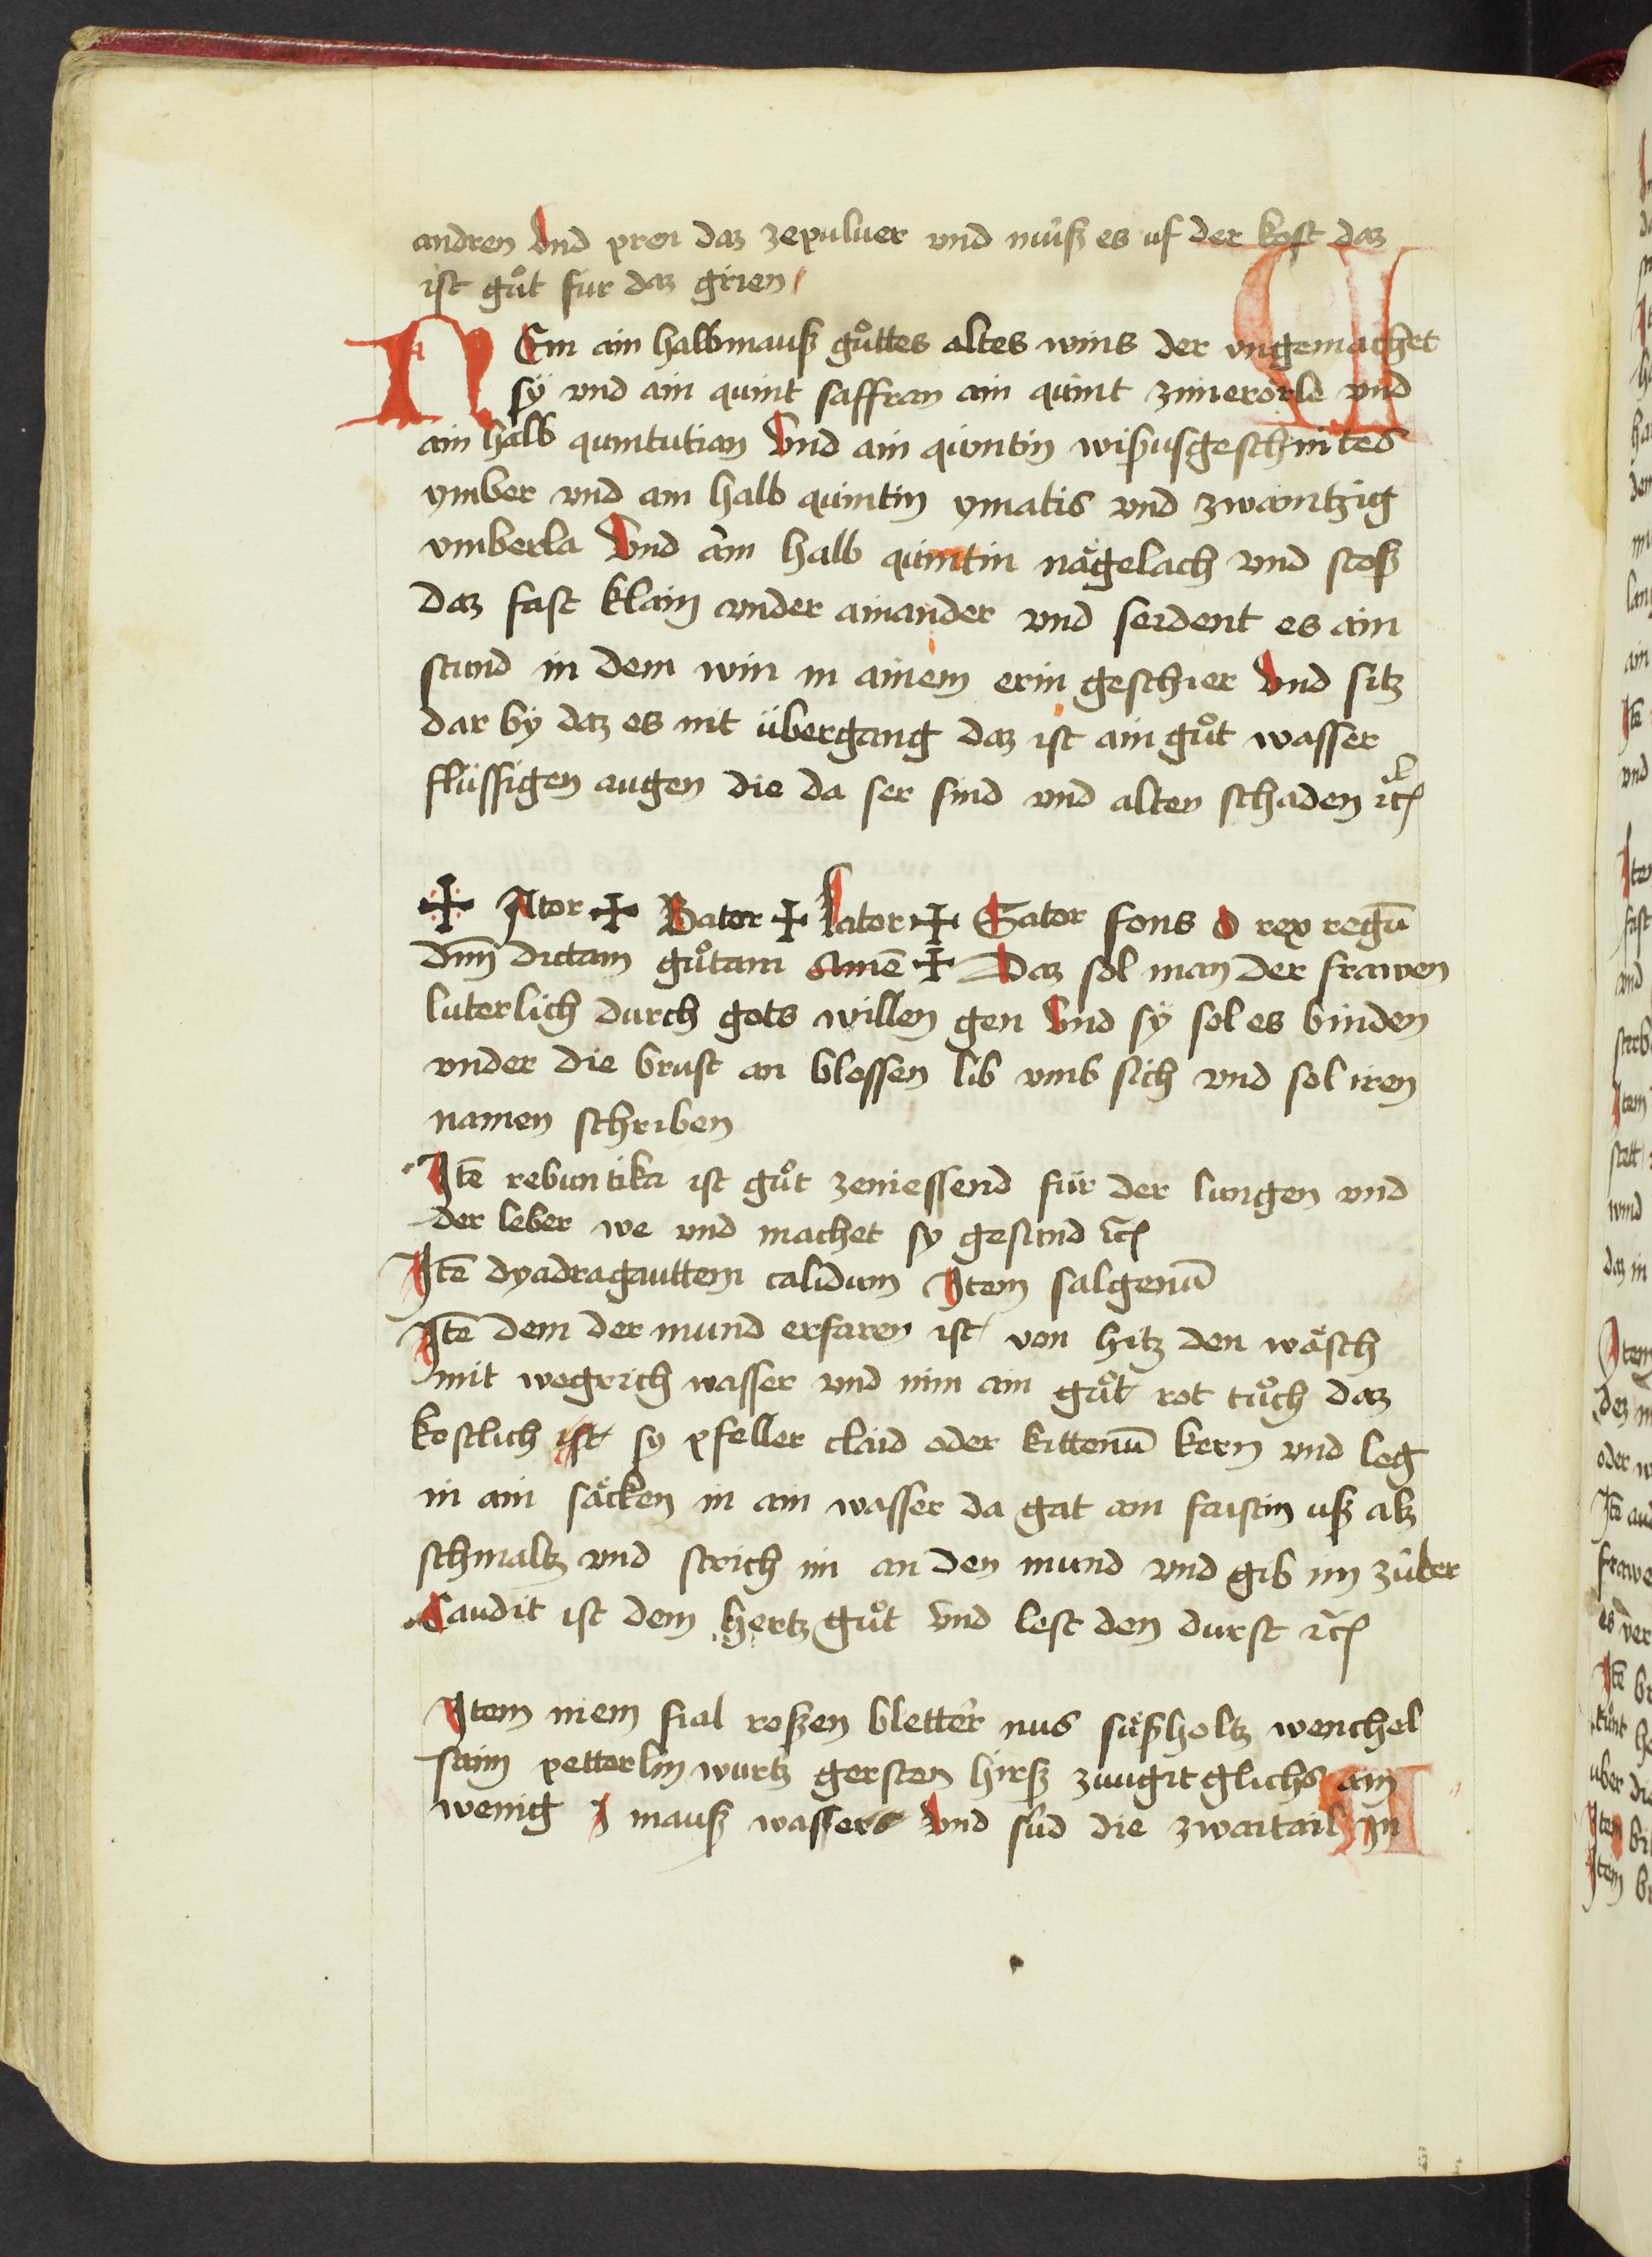 andren vnd pren daz zepuluer vnd nüsß es uf der kost daz
ist gůt für daz grien
NEm ain halbmauß gůttes altes wins der vngemachet
sÿ vnd ain quint saffran ain quint zimerörlē vnd
ain halb quintution Vnd ain quintin wisusgeschnites
ymber vnd ain halb quintin ymatis vnd zwaintzig
vmberla Vnd ain halb quintin nägelach vnd stoß
daz fast klain vnder ainander vnd seident es ain
stund in dem win in ainem erin geschier Vnd sitz
dar bÿ daz es nit übergang daz ist ain gůt wasser
flüssigen augen die da ser sind vnd alten schaden ꝛc̄
✠ Ator ✠ Bator ✠ Lator ✠ Sator fons o rex regū
dm̄ dictam gůtam Amē ✠ Daz sol man der frawen
luterlich durch gots willen gen Vnd sÿ sol es binden
vnder die brust an blossen lib vmb sich vnd sol iren
namen schriben
Itē rebuntika ist gůt zeniessend für der lungen vnd
der leber we vnd machet sy gesund ꝛc̄
Itē dyadragauttem calidum Item salgenū
Itē dem der mund erfaren ist von hitz den wäsch
mit wegrich wasser vnd nim ain gůt rot tůch daz
kostlich ist sy pfeller claid oder kittenū kern vnd leg
in ain säcken in ain wasser da gat ain faistin uß alz
schmaltz vnd strich im an den mund vnd gib im zuker
Candit ist dem hertz gůt vnd lest den durst ꝛc̄
Item niem fial roßen bletter nus süßholtz wenchel
sam petterlin wurtz gersten hirß zuugit glichs ain
wenig I mauß wassers Vnd sud die zwaitail in